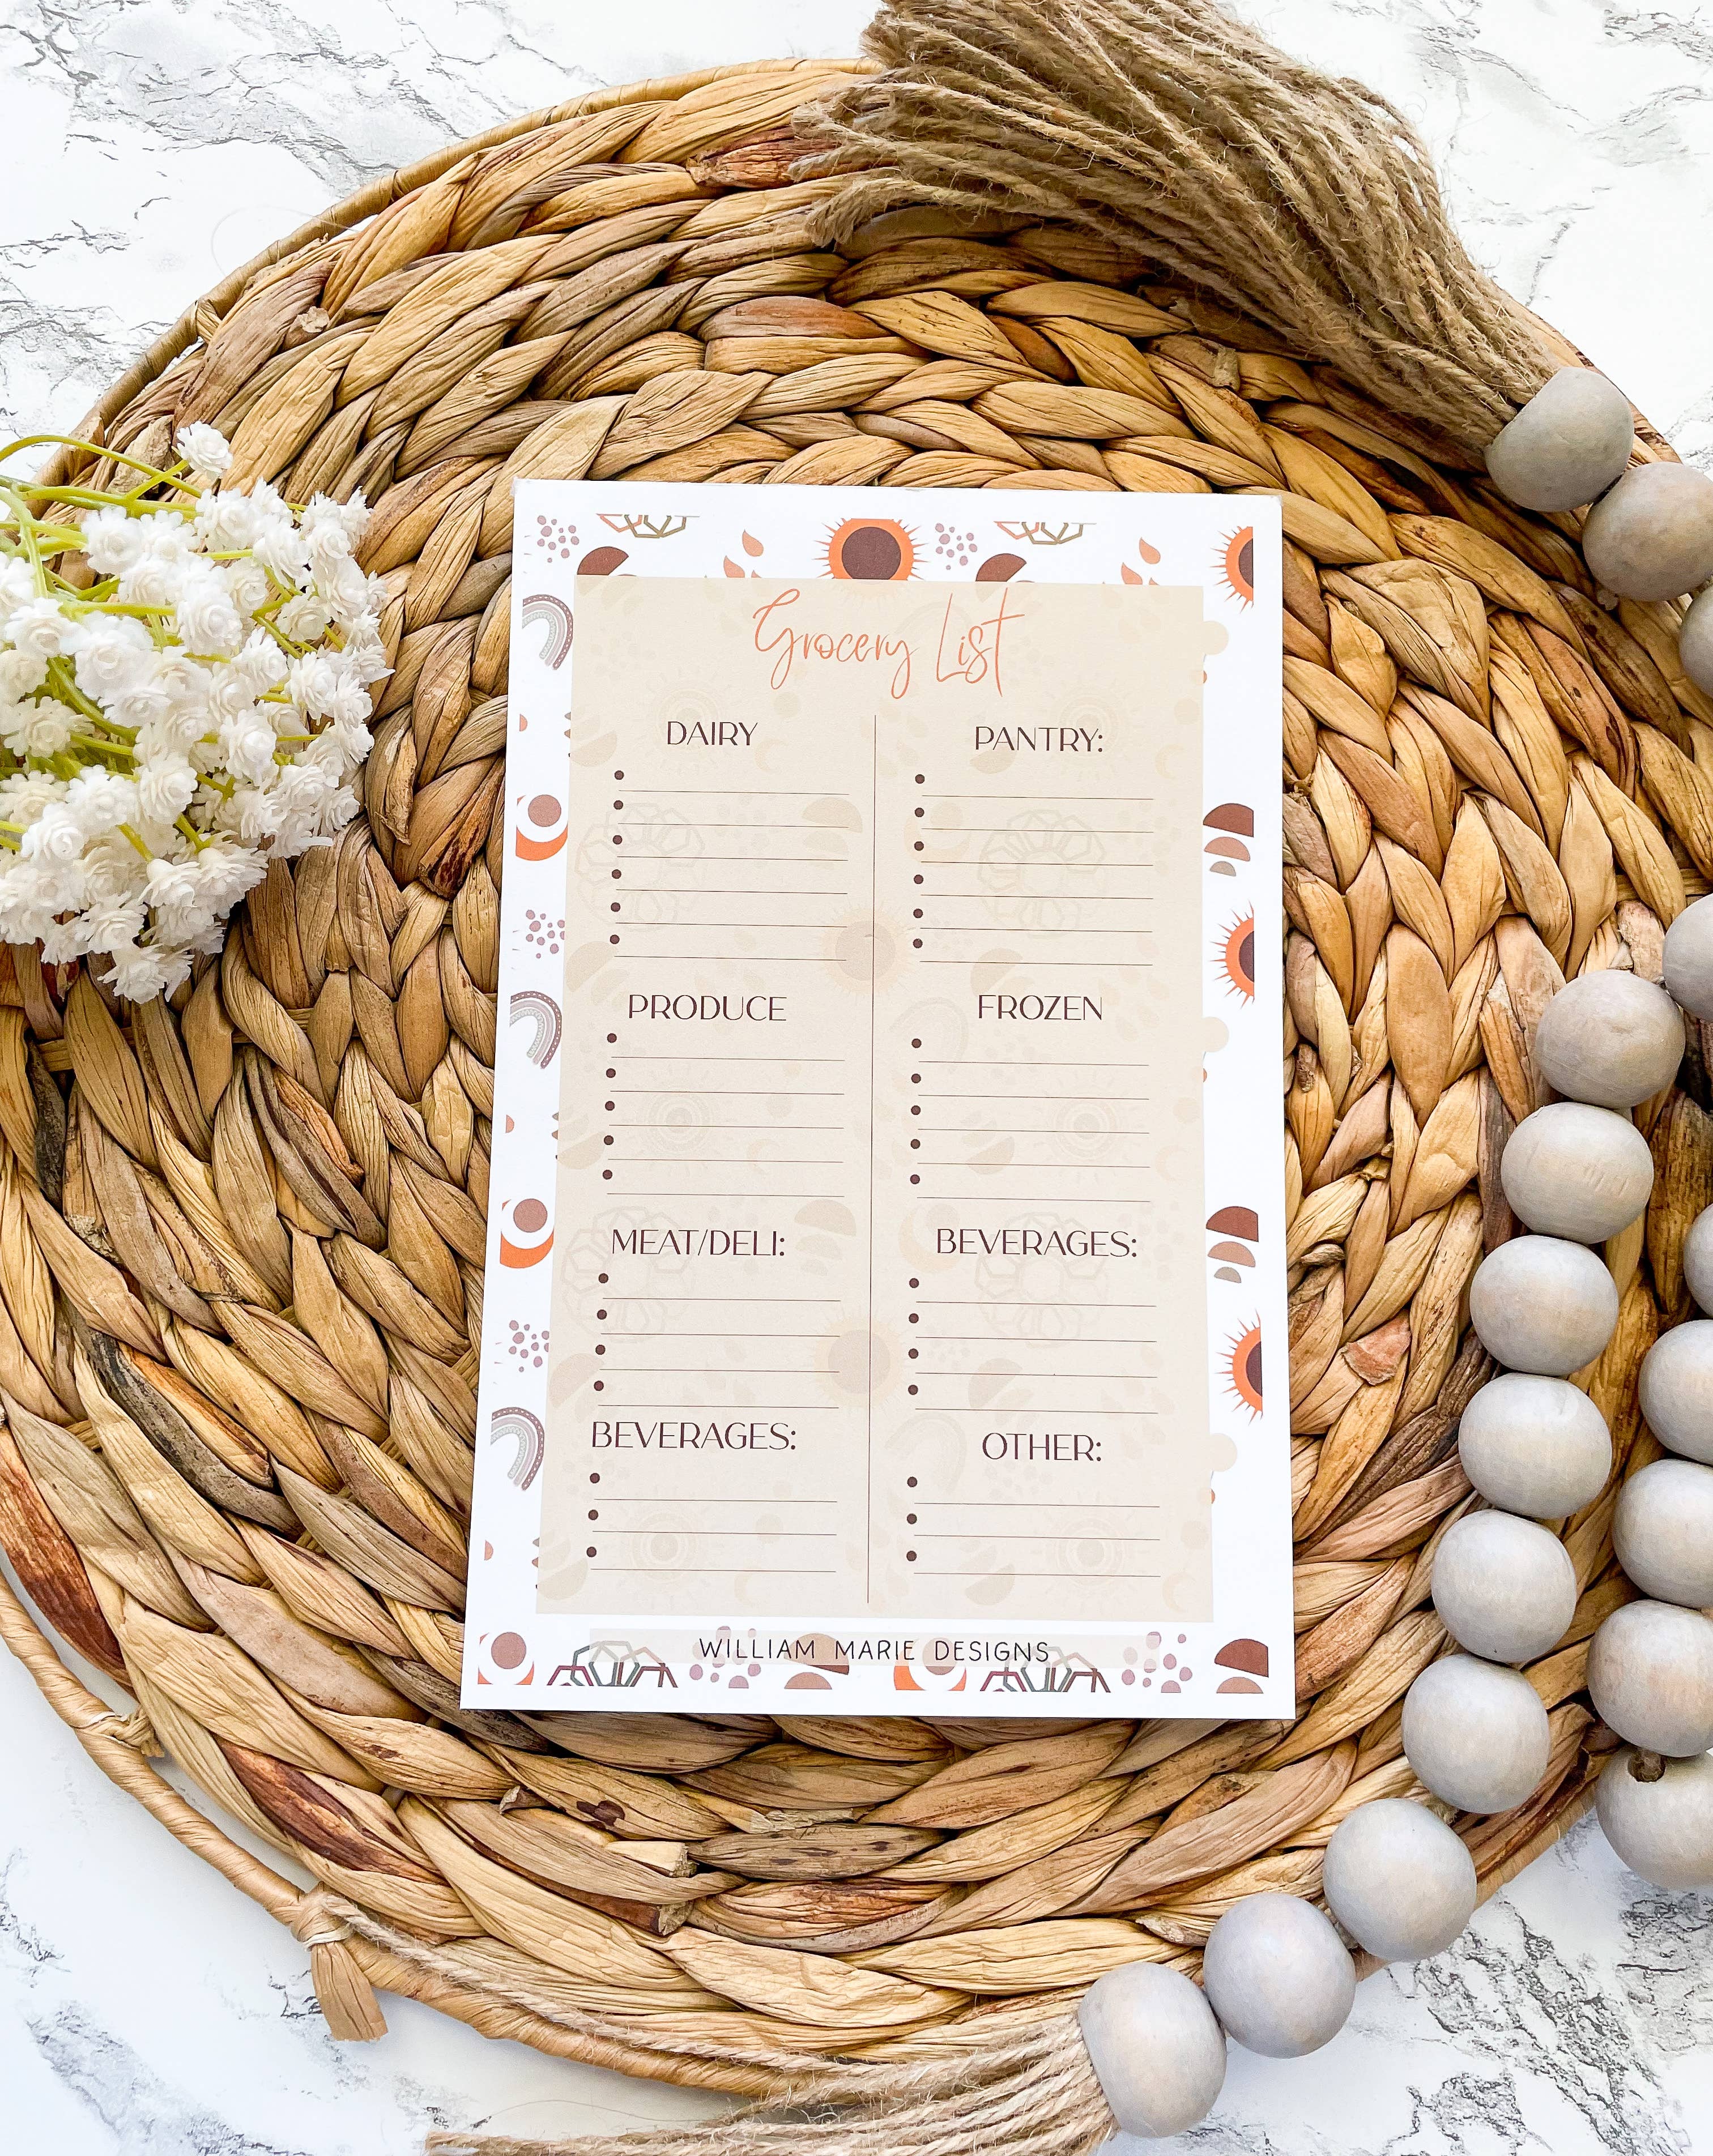 Grocery List
DAIRY
PRODUCE
MEAT/DELI:
BEVERAGES:
PANTRY:
FROZEN
BEVERAGES:
OTHER:
WILLIAM MARIE DESIGNS